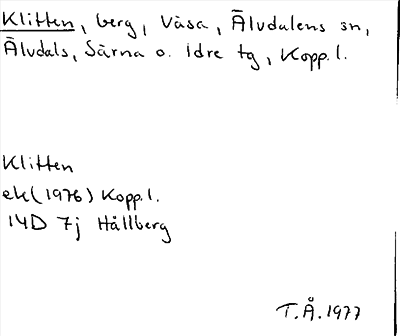 Klitten, berg, Våsa, Älvdalens sn,
Älvdals, Särna o. Idre tg, Kopp. l.
Klitten
ek (1976) Kopp. l.
14D 7j Hållberg
T.Å. 1977